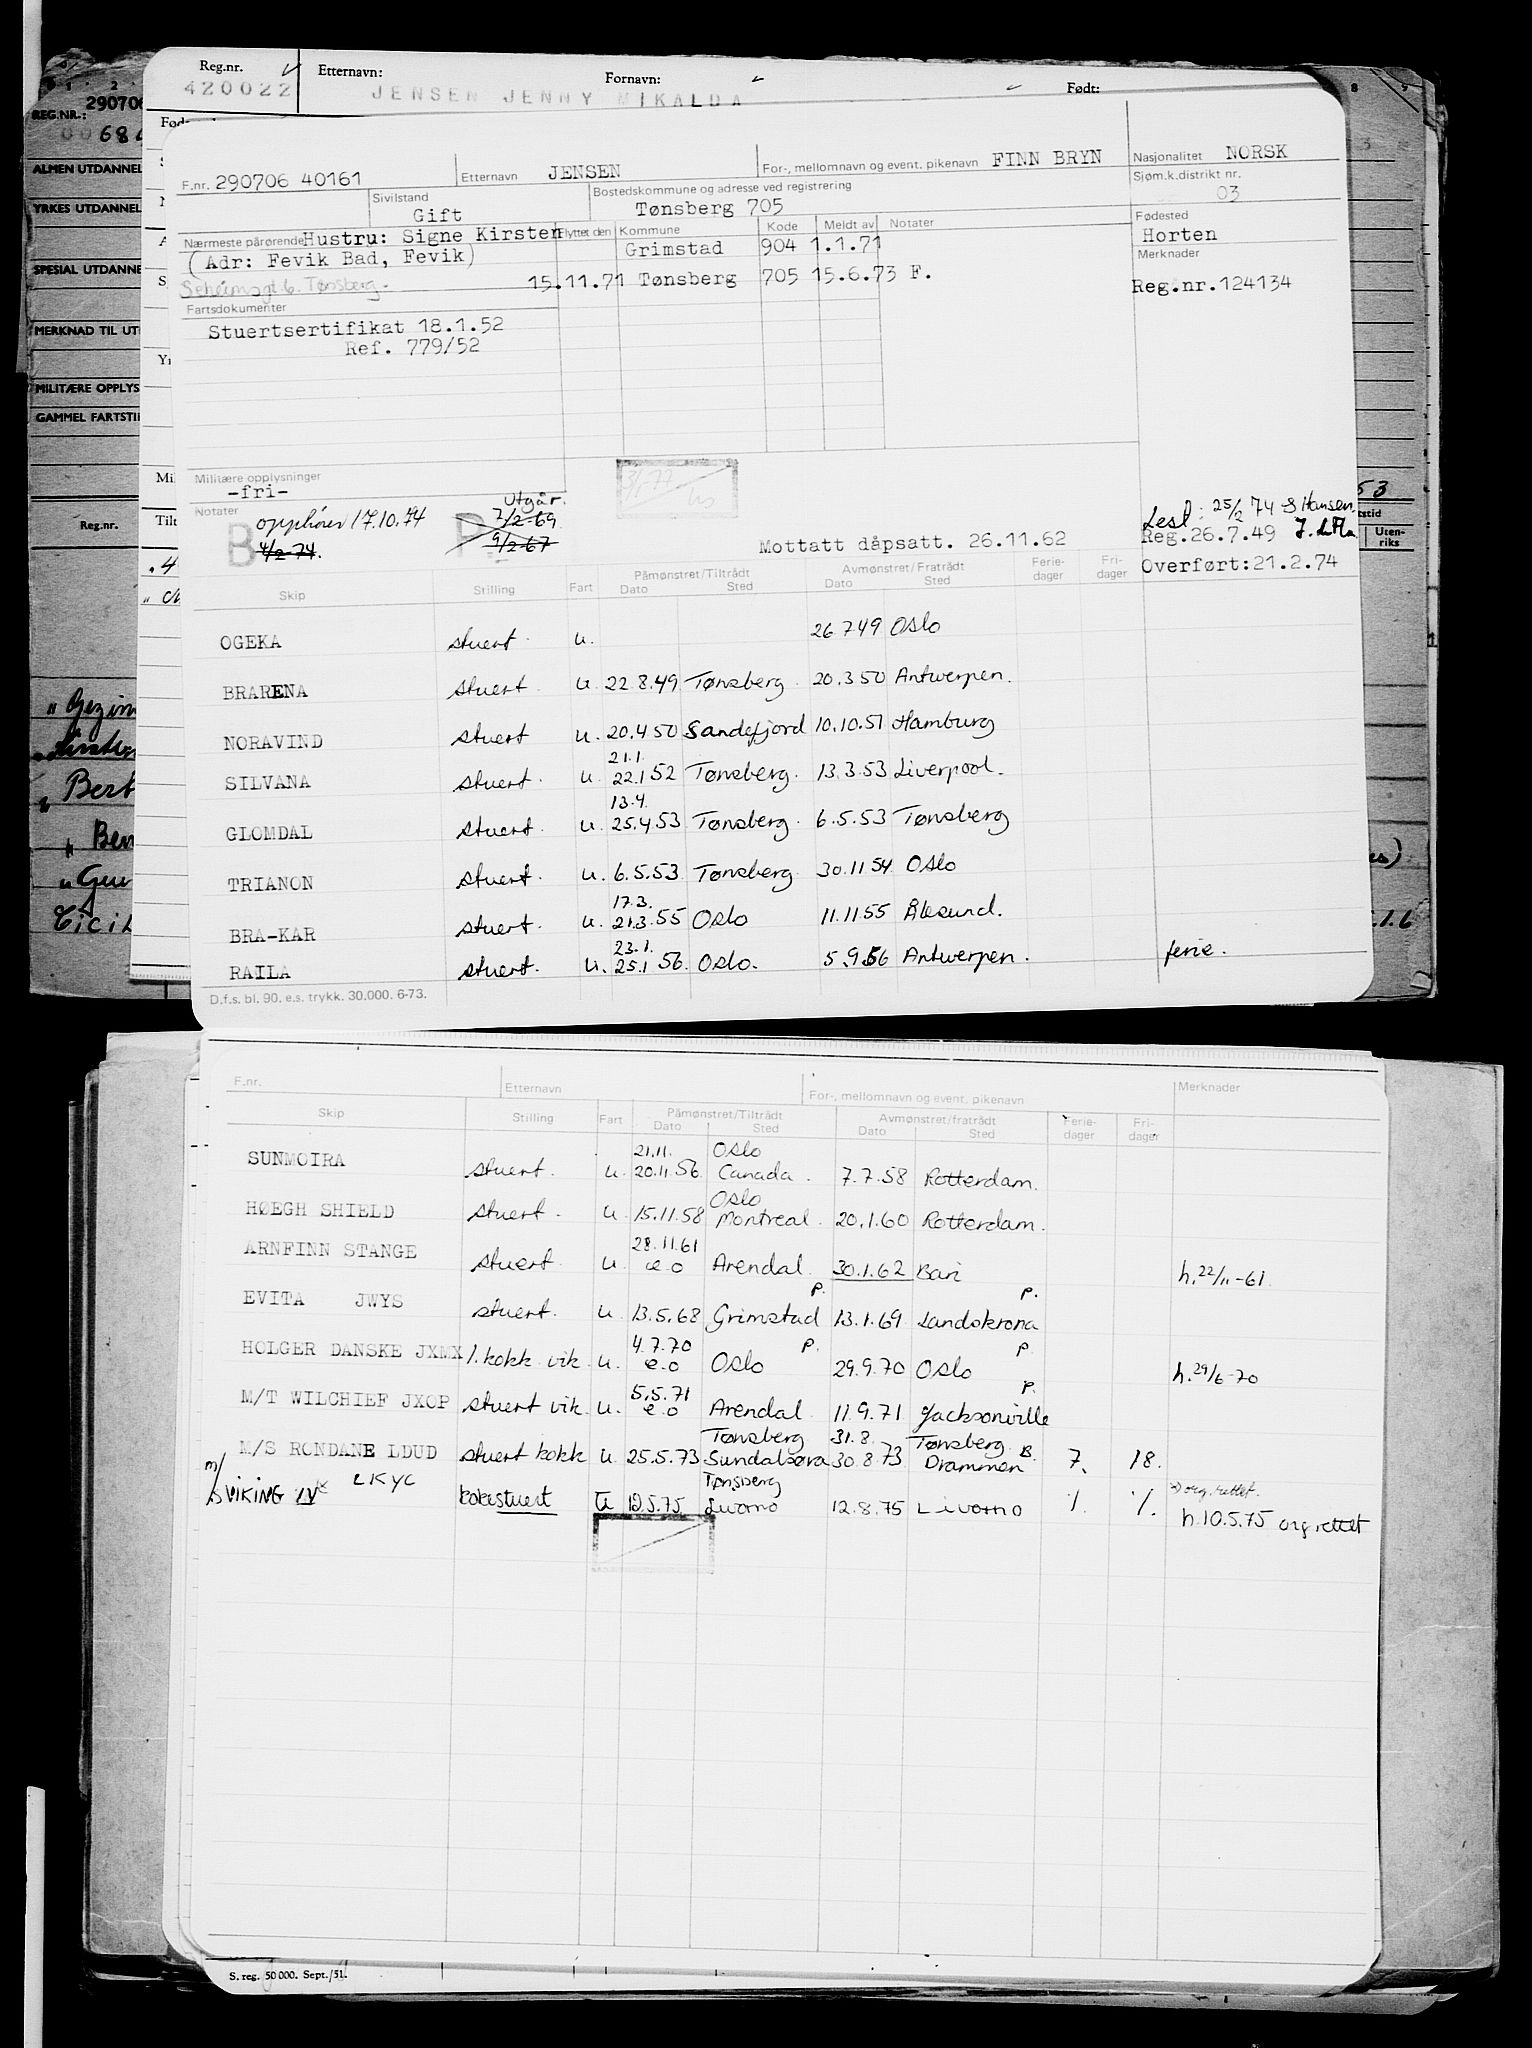 Reg.nr. Etternavn: Fornavn: Født:
420022 JENSEN JENNY MIKALDA
1 2 8 9
REG.NR.: 290706
ALMEN UTDANNEL
YRKES UTDANNEL
SPESIAL UTDANNE
MERKNAD TIL UT
MILITÆRE OPPLYS
GAMMEL FARTSTI
Reg.nr.
F.nr. 290706 40161 Etternavn JENSEN For-, mellomnavn og event. pikenavn FINN BRYN Nasjonalitet NORSK
Sivilstand Bostedskommune og adresse ved registrering Sjøm.k.distrikt nr.
Gift Tønsberg 705 03
Nærmeste pårørende Hustru: Signe Kirsten Flyttet den Kommune Kode Meldt av Notater Fødested
(Adr: Fevik Bad, Fevik) Grimstad 904 1.1.71 Horten
Tønsberg. 15.11.71 Tønsberg 705 15.6.73 F. Merknader
Reg.nr.124134
Fartsdokumenter
Stuertsertifikat 18.1.52
Ref. 779/52
Militære opplysninger
-fri-
3/1-77
Notater
B opphører 17.10.74
4/2-74.
Utgår.
7/2-69
9/2-67
Lest: 25/2 74 S Hansen.
Mottatt dåpsatt. 26.11.62 Reg.26.7.49
Overført:21.2.74
Skip Stilling Fart Påmønstret/Tiltrådt Dato Sted Avmønstret/Fratrådt Dato Sted Ferie- dager Fri- dager
OGEKA stuert u. 26.7.49 Oslo
BRARENA stuert u. 22.8.49 Tønsberg 20.3.50 Antwerpen.
NORAVIND stuert u. 20.4.50 Sandefjord 10.10.51 Hamburg
21.1.
SILVANA stuert u. 22.1.52 Tønsberg. 13.3.53 Liverpool.
13.4.
GLOMDAL stuert. u. 25.4.53 Tønsberg. 6.5.53 Tønsberg
TRIANON stuert. u. 6.5.53 Tønsberg 30.11.54 Oslo
17.3.
BRA-KAR stuert. u. 21.3.55 Oslo 11.11.55 Ålesund.
23.1.
RAILA stuert. u. 25.1.56. Oslo. 5.9.56 Antwerpen. ferie.
D.f.s. bl. 90. e.s. trykk. 30.000. 6-73.
F.nr. Etternavn For-, mellomnavn og event. pikenavn Merknader
Skip Stilling Fart Påmønstret/Tiltrådt Dato Sted Avmønstret/fratrådt Dato Sted Ferie- dager Fri- dager
21.11. Oslo
SUNMOIRA stuert. u. 20.11.56. Canada. 7.7.58 Rotterdam.
Oslo
HØEGH SHIELD stuert. u. 15.11.58 Montreal. 20.1.60 Rotterdam.
28.11.61
ARNFINN STANGE stuert. u. e.o Arendal. 30.1.62 Bari h.22/11-61.
p. p.
EVITA JWYS stuert. u. 13.5.68 Grimstad 13.1.69 Landskrona
4.7.70 p. p.
HOLGER DANSKE JXMX 1.kokk vik. u. e.o Oslo 29.9.70 Oslo h.29/6-70
5.5.71 p.
M/T WILCHIEF JXOP stuert vik. u. e.o Arendal. 11.9.71 Jacksonville
Tønsberg 31.8. Tønsberg
M/S RONDANE LDUD stuert kokk u. 25.5.73 Sundalsøra 30.8.73 Drammen B. 7. 18.
Tønsberg
M/S VIKING IV x LKYC kokkstuert u 12.5.75 Livorno 12.8.75 Livorno ·/. ·/. x) org. rettet.
h.10.5.75 org rettet
S. reg. 50 000. Sept./51.